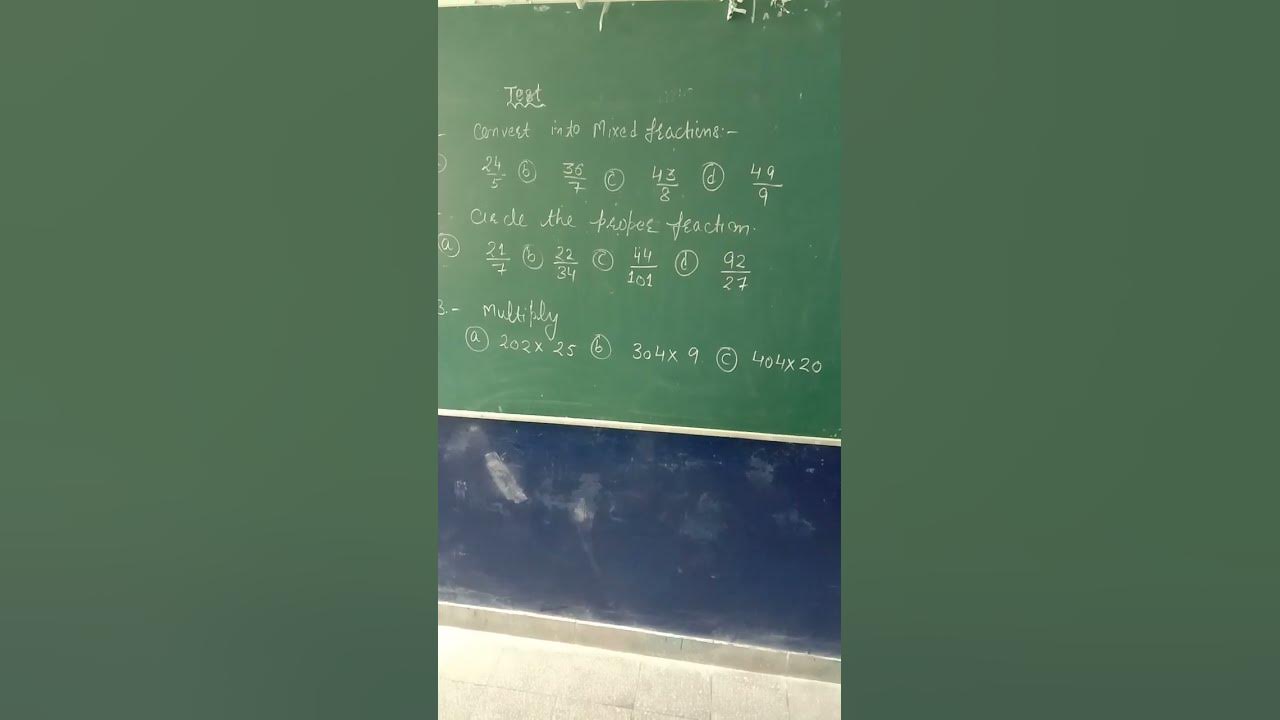 Test
- Convert into Mixed fractions:-
24/5 ⓑ 36/7 ⓒ 43/8 ⓓ 49/9
- Circle the proper fraction.
ⓐ 21/7 ⓑ 22/34 ⓒ 44/101 ⓓ 92/27
3.- Multiply
ⓐ 202 x 25 ⓑ 304 x 9 ⓒ 404 x 20